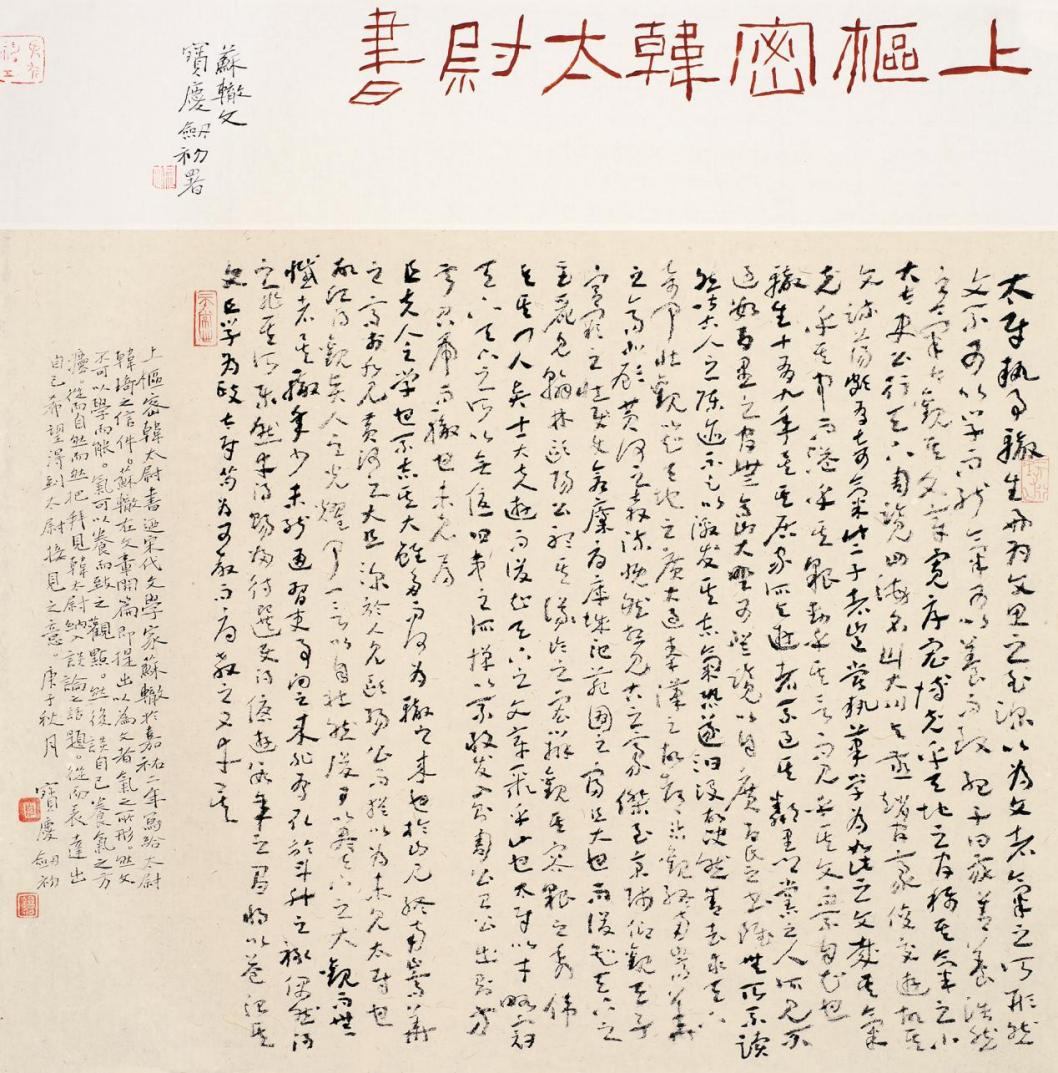 上樞密韓太尉書
蘇轍文
寶慶劒初署
太尉執事轍生好為文思之至深以為文者氣之所形然
文不可以學而能氣可以養而致孟子曰我善養浩然
之氣今觀其文章寬厚宏博充乎天地之間稱其氣之小
大太史公行天下周覽四海名山大川與燕趙間豪俊交遊故其
文疏蕩頗有奇氣此二子者豈嘗執筆學為如此之文哉其氣
充乎其中而溢乎其貌動乎其言而見乎其文不自知也
轍生十有九年矣其居家所與遊者不過其鄰里鄉黨之人所見不
過數百里之間無高山大野可登覽以自廣百氏之書雖無所不讀
然皆古人之陳迹不足以激發其志氣恐遂汩沒故決然舍去求天下
奇聞壯觀以知天地之廣大過秦漢之故都恣觀終南嵩華
之高北顧黃河之奔流慨然想見古之豪傑至京師仰觀天子
宮闕之壯與倉廩府庫城池苑囿之富且大也而後知天下之
巨麗見翰林歐陽公聽其議論之宏辯觀其容貌之秀偉
與其門人賢士大夫遊而後知天下之文章聚乎此也太尉以才略冠
天下天下之所以無憂四夷之所憚以不敢發入則周公召公出則方
叔召虎而轍也未見焉
且夫人之學也不志其大雖多而何為轍之來也於山見終南嵩華
之高於水見黃河之大且深於人見歐陽公而猶以為未見太尉也
故願得觀賢人之光耀聞一言以自壯然後可以盡天下之大觀而無
憾者矣轍年少未能通習吏事嚮之來非有取於斗升之祿偶然得
之非其所樂然幸得賜歸待選使得優遊數年之間將以益治其
文且學為政太尉苟為可教而辱教之又幸矣
上樞密韓太尉書迺宋代文學家蘇轍於嘉祐二年寫給太尉
韓琦之信件。蘇轍在文章開篇即提出以為文者氣之所形。然文
不可以學而能。氣可以養而致之觀點。然後談自己養氣之方
癒。從而自然而然把拜見韓太尉納入談論之話題。從而表達出
自己希望得到太尉接見之意。庚子秋月 寶慶劒初